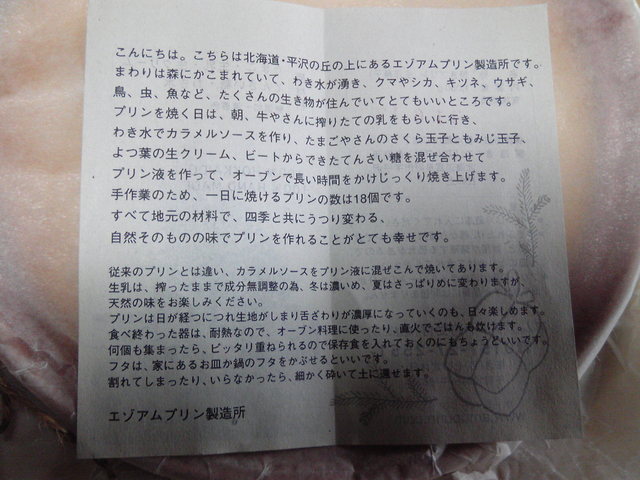 こんにちは。こちらは北海道・平沢の丘の上にあるエゾアムプリン製造所です。
まわりは森にかこまれていて、わき水が湧き、クマやシカ、キツネ、ウサギ、
鳥、虫、魚など、たくさんの生き物が住んでいてとてもいいところです。
プリンを焼く日は、朝、牛やさんに搾りたての乳をもらいに行き、
わき水でカラメルソースを作り、たまごやさんのさくら玉子ともみじ玉子、
よつ葉の生クリーム、ビートからできたてんさい糖を混ぜ合わせて
プリン液を作って、オーブンで長い時間をかけじっくり焼き上げます。
手作業のため、一日に焼けるプリンの数は18個です。
すべて地元の材料で、四季と共にうつり変わる、
自然そのものの味でプリンを作れることがとても幸せです。
従来のプリンとは違い、カラメルソースをプリン液に混ぜこんで焼いてあります。
生乳は、搾ったままで成分無調整の為、冬は濃いめ、夏はさっぱりめに変わりますが、
天然の味をお楽しみください。
プリンは日が経つにつれ生地がしまり舌ざわりが濃厚になっていくのも、日々楽しめます。
食べ終わった器は、耐熱なので、オーブン料理に使ったり、直火でごはんも炊けます。
何個も集まったら、ピッタリ重ねられるので保存食を入れておくのにもちょうどいいです。
フタは、家にあるお皿か鍋のフタをかぶせるといいです。
割れてしまったり、いらなかったら、細かく砕いて土に還せます。
エゾアムプリン製造所